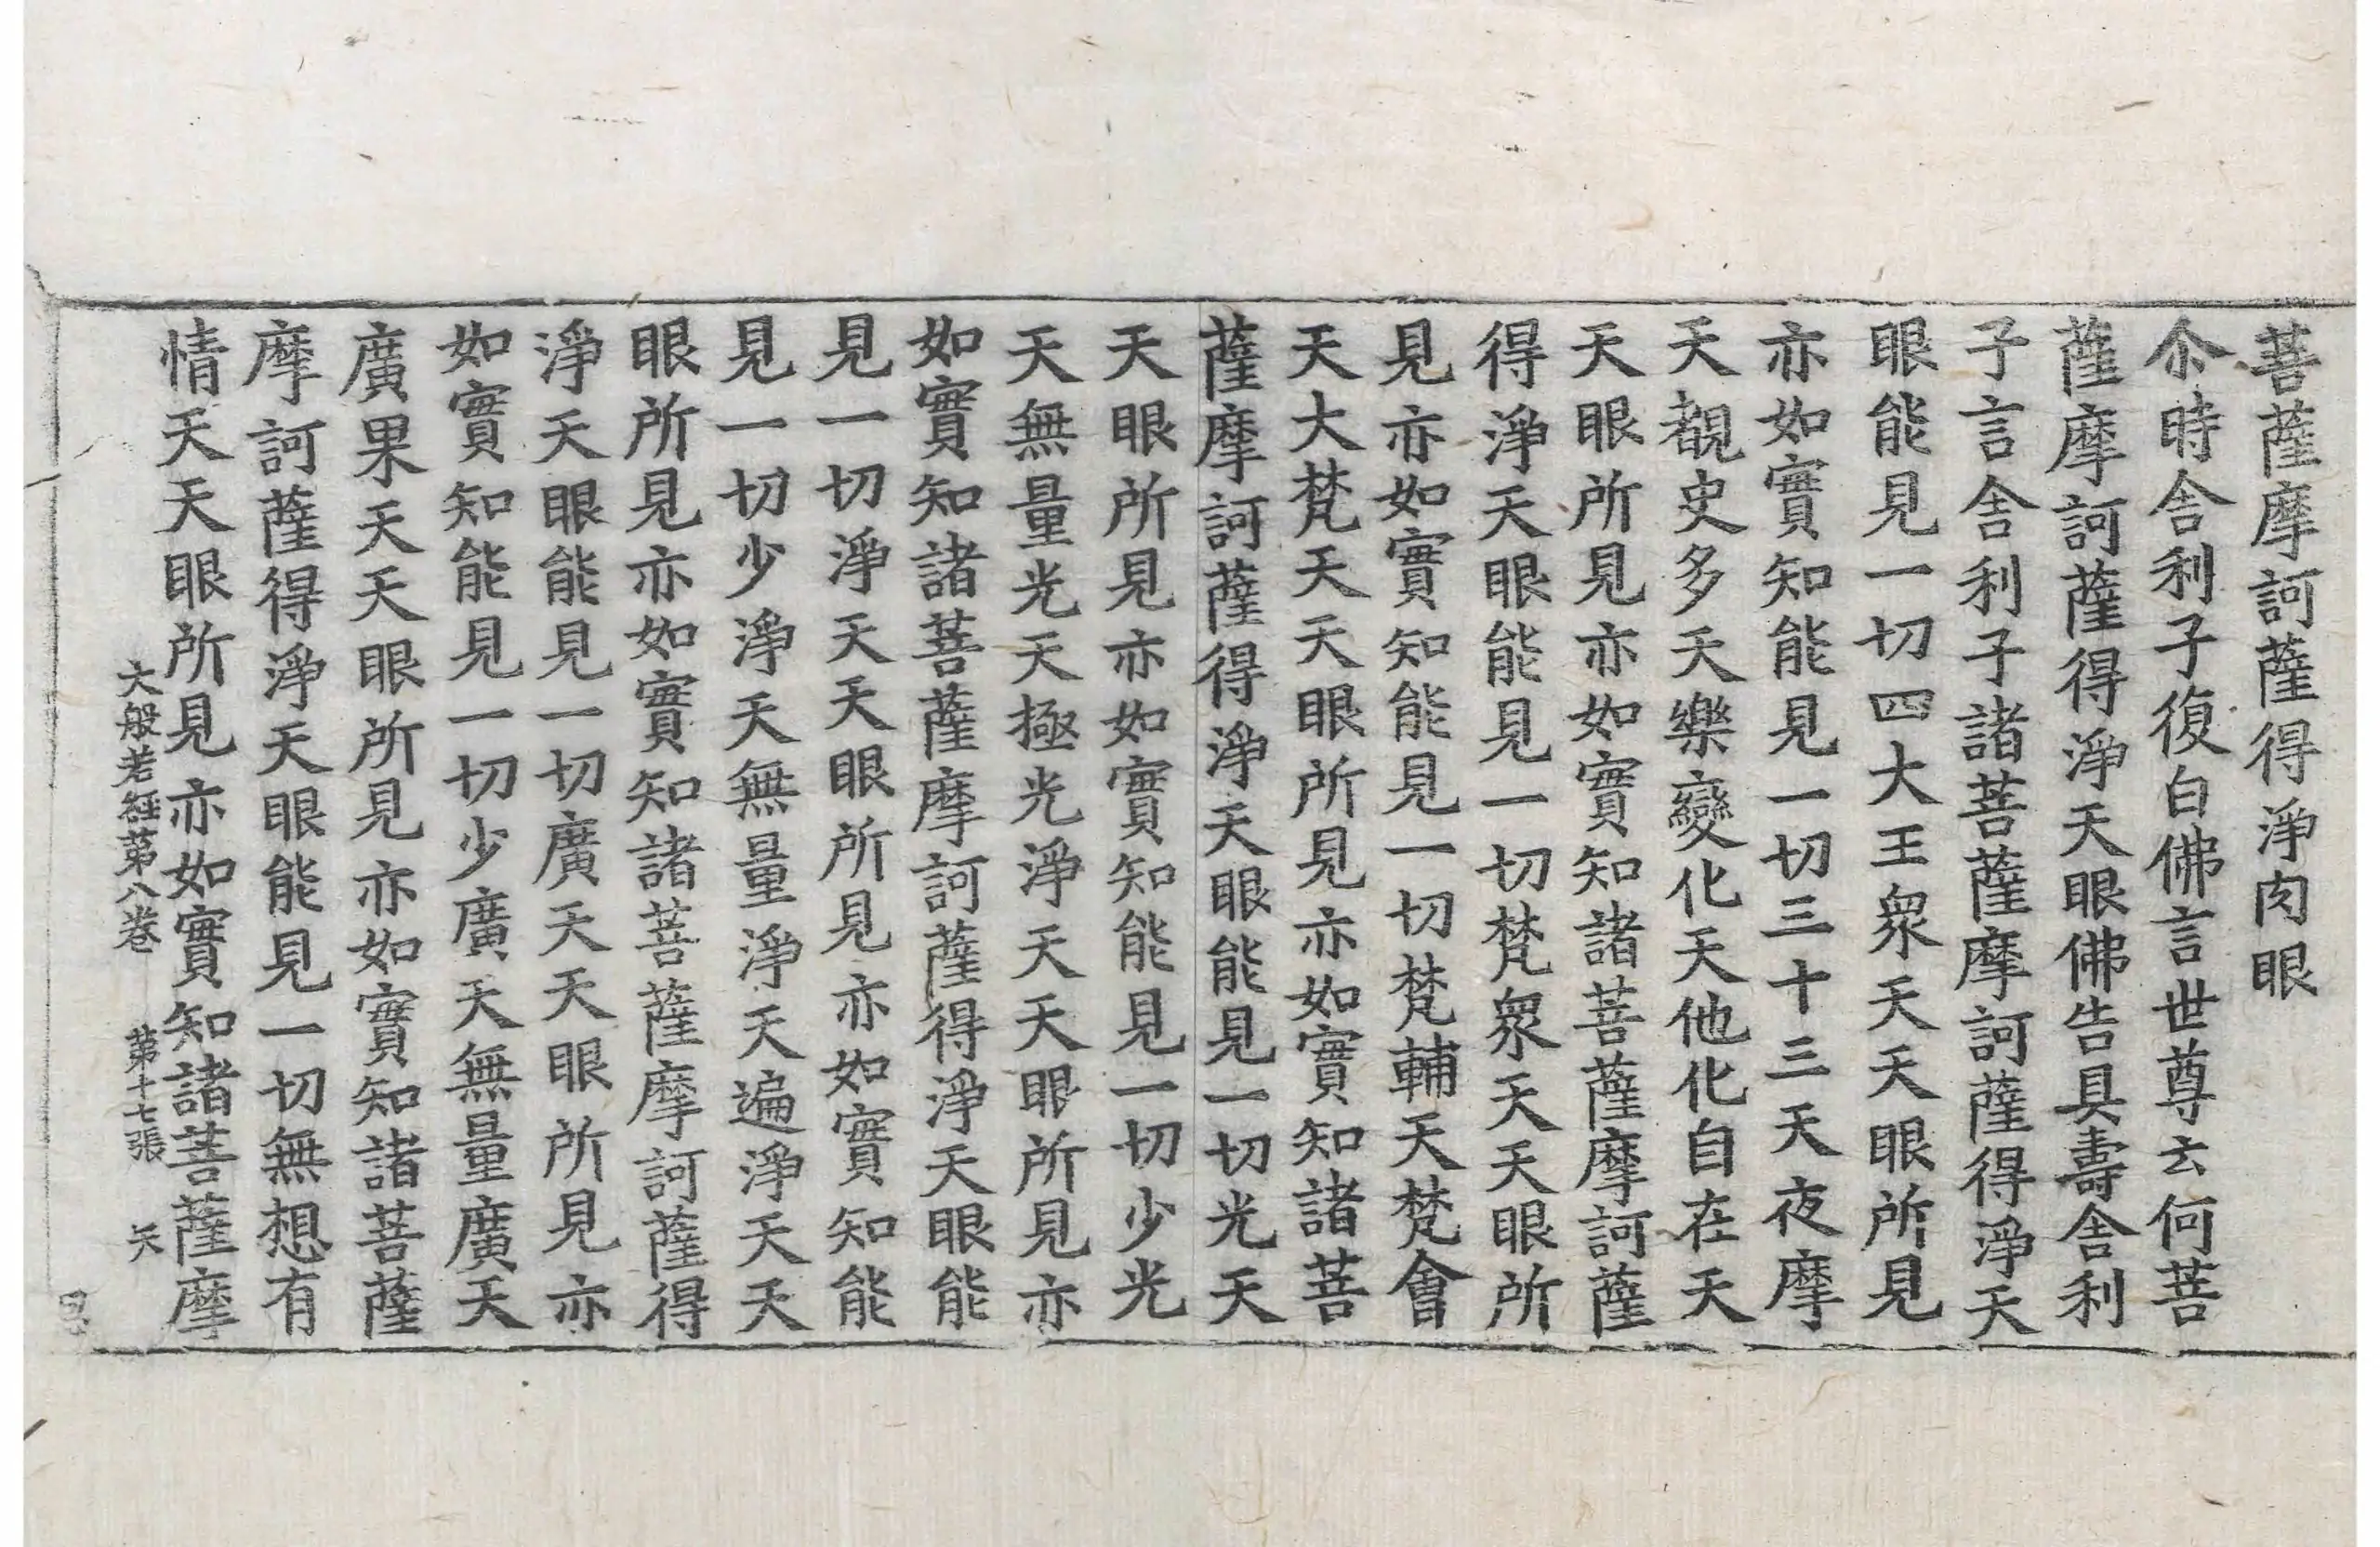 菩薩摩訶薩得淨肉眼
尒時舍利子復白佛言世尊云何菩
薩摩訶薩得淨天眼佛告具壽舍利
子言舍利子諸菩薩摩訶薩得淨天
眼能見一切四大王衆天天眼所見
亦如實知能見一切三十三天夜摩
天覩史多天樂變化天他化自在天
天眼所見亦如實知諸菩薩摩訶薩
得淨天眼能見一切梵衆天天眼所
見亦如實知能見一切梵輔天梵會
天大梵天天眼所見亦如實知諸菩
薩摩訶薩得淨天眼能見一切光天
天眼所見亦如實知能見一切少光
天無量光天極光淨天天眼所見亦
如實知諸菩薩摩訶薩得淨天眼能
見一切淨天天眼所見亦如實知能
見一切少淨天無量淨天遍淨天天
眼所見亦如實知諸菩薩摩訶薩得
淨天眼能見一切廣天天眼所見亦
如實知能見一切少廣天無量廣天
廣果天天眼所見亦如實知諸菩薩
摩訶薩得淨天眼能見一切無想有
情天天眼所見亦如實知諸菩薩摩
大般若經第八卷 第十七張 天